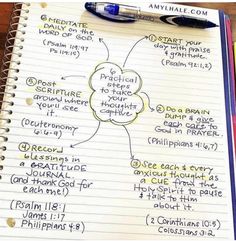 AMYLHALE.COM
6 Practical
steps
to take
your
thoughts
captive
① START your
day with praise
& gratitude.
(Psalm 92:1,2)
② DO A BRAIN
DUMP & give
each care to God
in PRAYER.
(Philippians 4:6,7)
③ SEE each & every
anxious thought as
a CUE from the
Holy Spirit to pause
& talk to Him
about it.
(2 Corinthians 10:5)
Colossians 3:2
④ RECORD
blessings in
a GRATITUDE
JOURNAL
(and thank God for
each one!)
(Psalm 118:1
James 1:17
Philippians 4:8)
⑤ POST
SCRIPTURE
around where
you'll see
it.
(Deuteronomy
6:6-9)
⑥ MEDITATE
DAILY on the
WORD OF GOD.
(Psalm 119:97